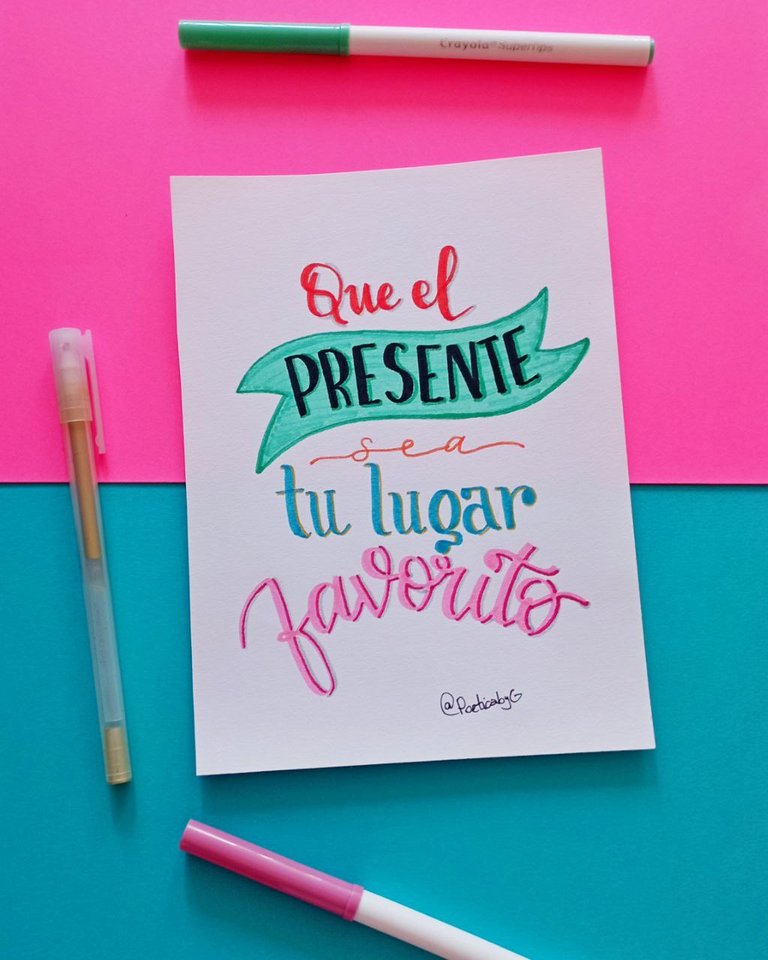 Crayola® Supertips
Que el
PRESENTE
sea
tu lugar
favorito
@PoeticabyG